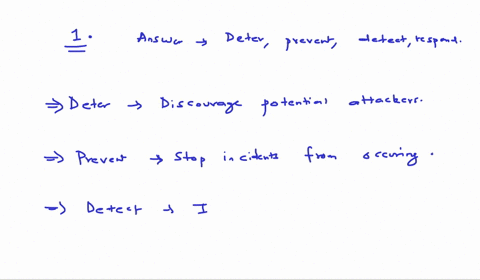 1. Answer → Deter, prevent, detect, respond.
⇒ Deter → Discourage potential attackers.
⇒ Prevent → Stop incidents from occuring.
⇒ Detect → I